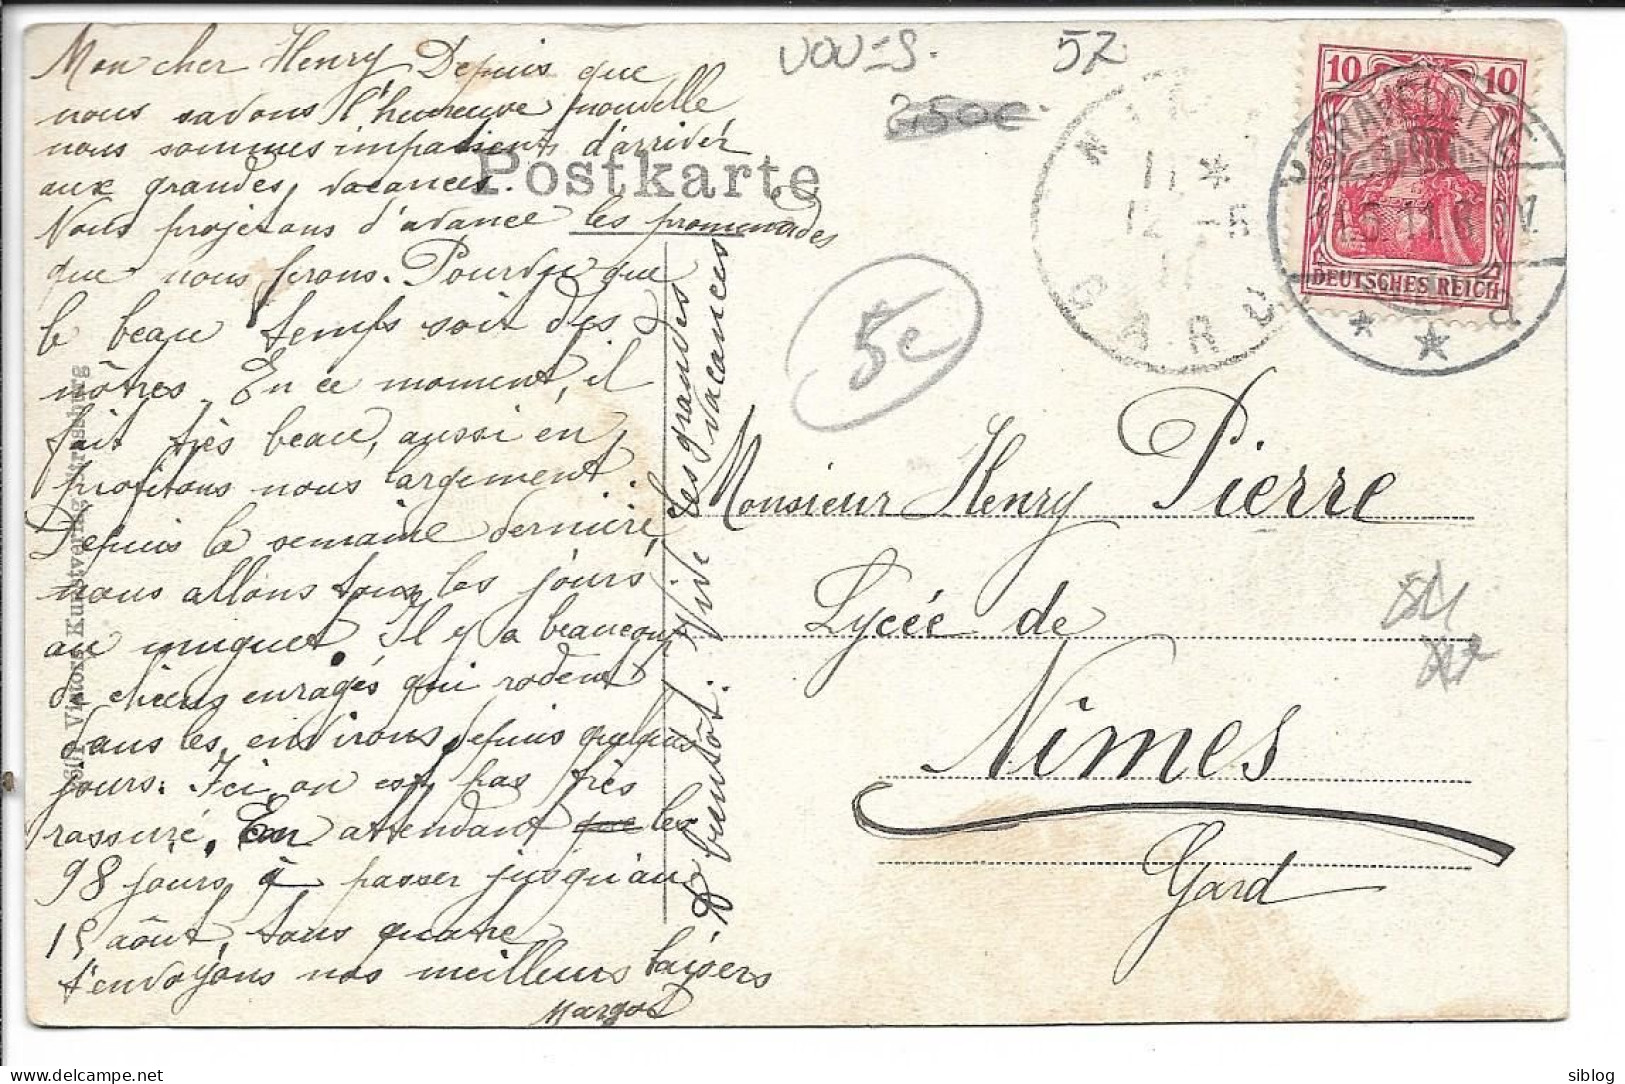 Mon cher Henry Depuis que
nous savons l'heureuse nouvelle
nous sommes impatients d'arriver
aux grandes vacances.
Nous projetons d'avance les promenades
que nous ferons. Pourvu que
le beau temps soit des
nôtres. En ce moment, il
fait très beau, aussi en
profitons nous largement.
Depuis la semaine dernière,
nous allons tous les jours
au muguet. Il y a beaucoup
de chiens enragés qui rodent
dans les environs depuis quelques
jours. Ici, on est pas très
rassuré. En attendant que les
98 jours à passer jusqu'au
15 août, tous quatre
t'envoyons nos meilleurs baisers
Margot
A bientôt. Vive les grandes
vacances
Postkarte
Victors Kunstverlag Strassburg
VOU-S.
57
2,50€
5€
NIMES
GARD
GRAVELOTTE
10 10
DEUTSCHES REICH
Monsieur Henry Pierre
Lycée de
Nîmes
Gard
siblog